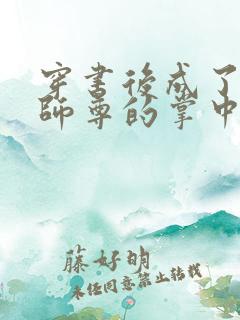 穿書後成了
師尊的掌中
藤好明
未经同意禁止转载